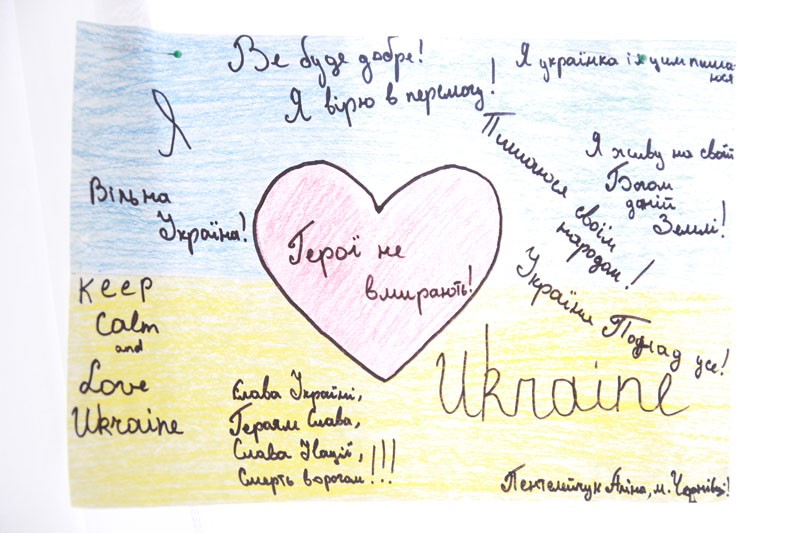 Все буде добре!
Я українка і цим пиша-
юся
Я вірю в перемогу!
Я
Пишаюся
своїм
народом!
Я живу на своїй
Богом
даній
Землі!
Вільна
Україна!
Герої не
вмирають!
Україна Понад усе!
Keep
Calm
and
Love
Ukraine
Ukraine
Слава Україні,
Героям Слава,
Слава Нації,
Смерть ворогам!!!
Аліна, м. Чернівці!